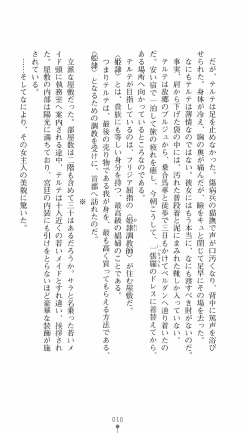 だが、テルテは足を止めなかった。傷病兵の猫撫で声が口汚くなり、背中に罵声を浴び
せられた。身体が冷え、胸の奥が痛んだが、瞼をキュッと閉じて足早にその場を去った。
なにもテルテは薄情なのではない。彼女にはもう本当に、なにも渡すべき財がないのだ。
事実、肩から下げた袋の中には、汚れた普段着と泥にまみれた靴しか入っていない。
テルテは故郷のブルジュから、乗合馬車と徒歩で三日もかけてベルダンへ辿り着いたの
だ。安い宿で一泊して旅の疲れを癒し、今朝こうして、一張羅のドレスに着替えてから、
ある場所へ向かっているところなのである。
テルテが目指しているのは、フリジア屈指の〈姫隷調教師〉が住む屋敷だ。
〈姫隷〉とは、貴族にも等しい身分を持つ、最高級の娼婦のことである。
つまりテルテは、最後の売り物である我が身を、最も高く買ってもらえる方法である、
〈姫隷〉となるための調教を受けに、首都へ訪れたのだ。
※
立派な屋敷だった。部屋数は二階も含めて二十はあるだろうか。サラと名乗った若いメ
イド頭に執務室へ案内される途中、テルテは十人近くの若いメイドとすれ違い、挨拶され
た。屋敷の内部は陽光に満ちており、宮廷の内装にも引けをとらないほど豪華な装飾が施
されている。
……そしてなにより、その女主人の美貌に驚いた。
010